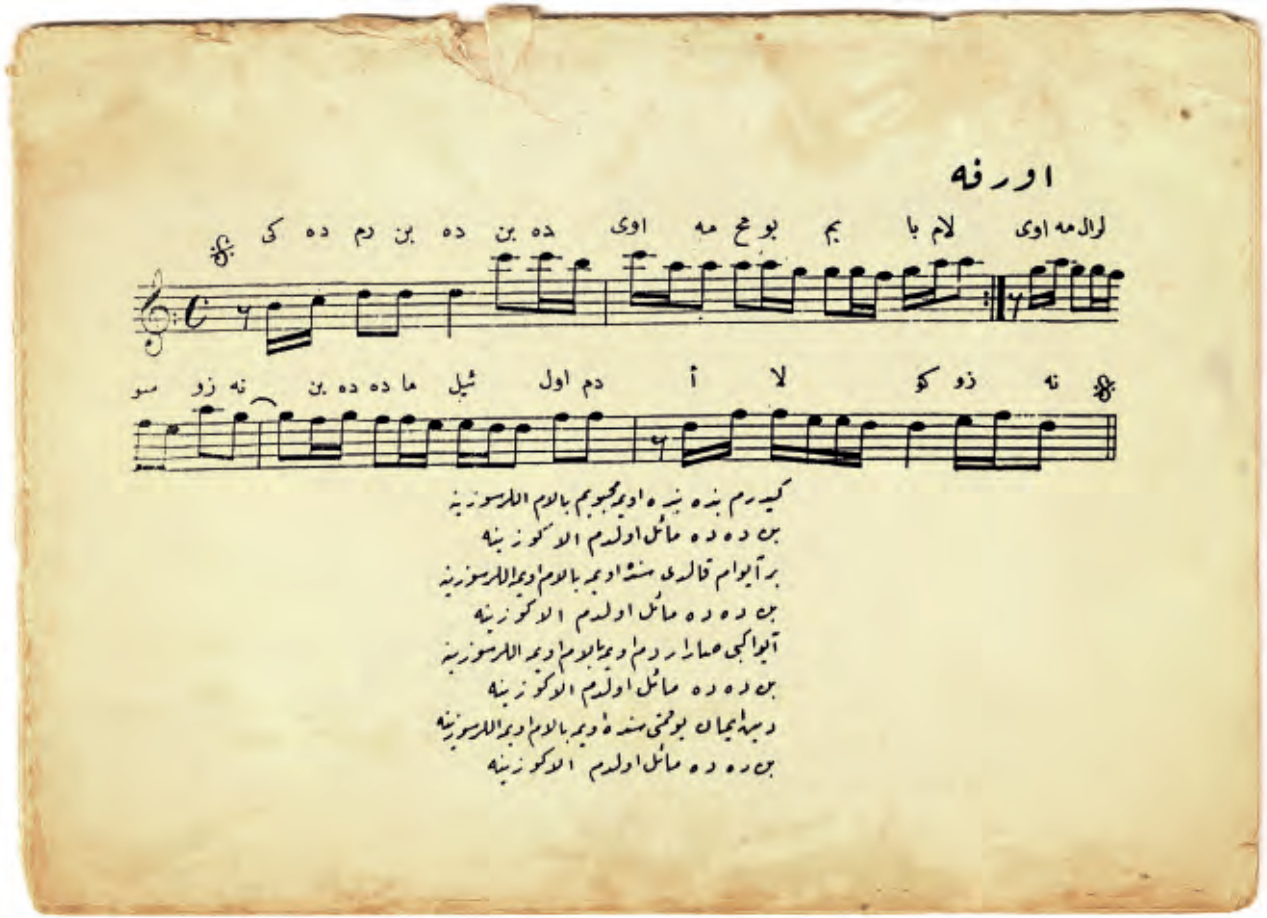 اورفه
كى ده رم بن ده بن ده اوى مه مح بو بم با لام لرال مه اوى
سو زو نه بن ده ده ما ئيل اول دم أ لا كو زو نه
كيدرم بنده بنده اويم محبوبم بالام اللر سوزينه
بن ده ده مائل اولدم الا كوزينه
بر آيوام قالدى سنده اويم بالام اويم اللر سوزينه
بن ده ده مائل اولدم الا كوزينه
آيوا كبى صارار دم اويم بالام اويم اللر سوزينه
بن ده ده مائل اولدم الا كوزينه
دين ايمان يوقمى سنده اويم بالام اويم اللر سوزينه
بن ده ده مائل اولدم الا كوزينه